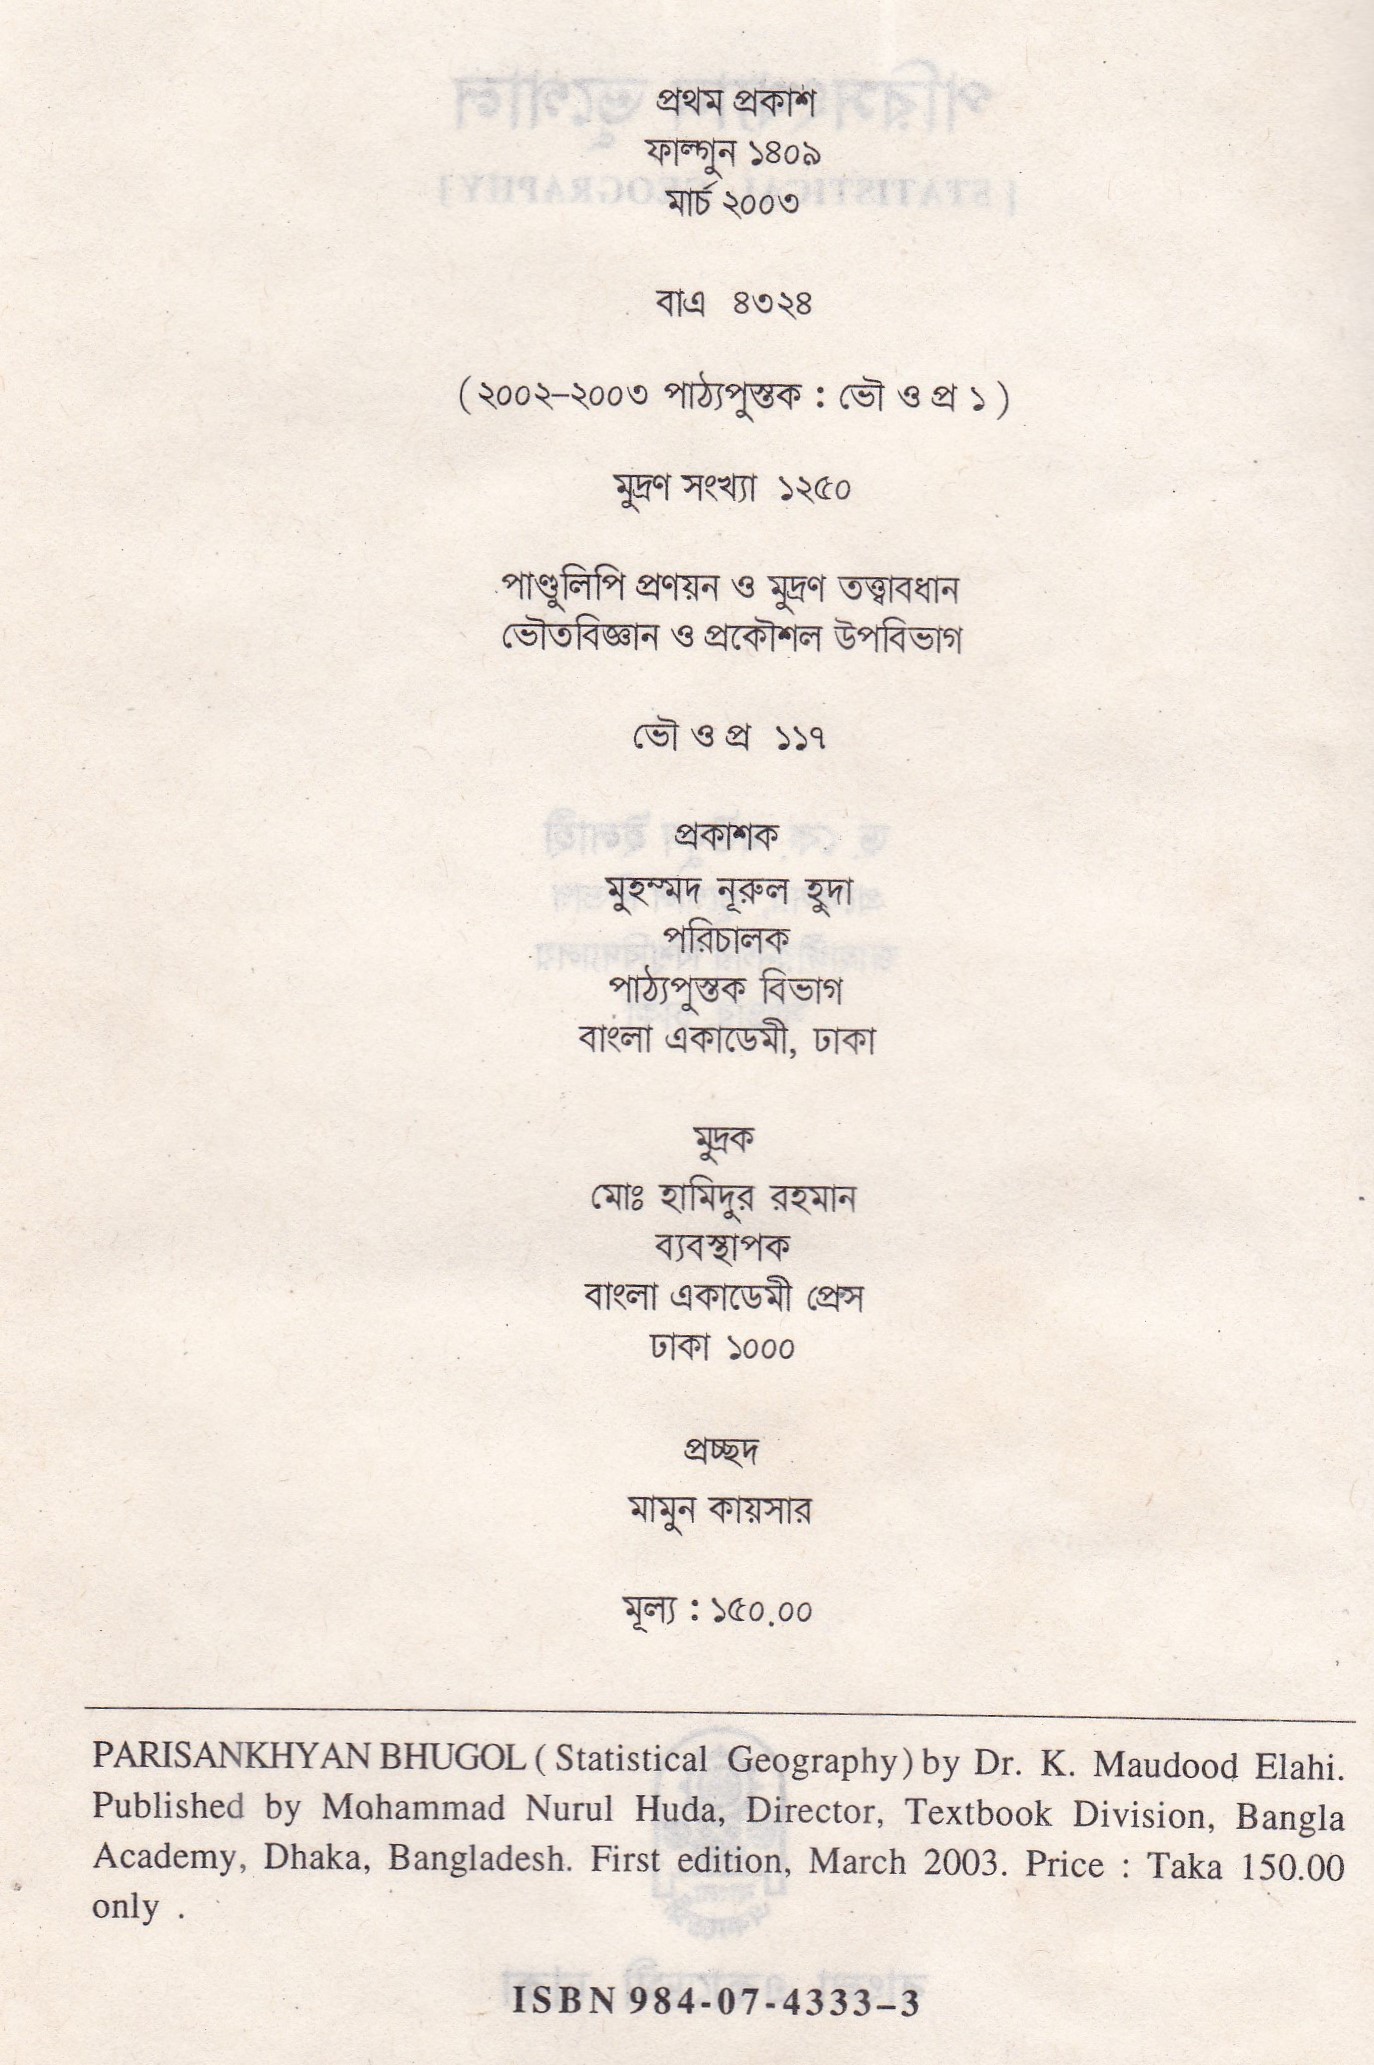 প্রথম প্রকাশ
ফাল্গুন ১৪০৯
মার্চ ২০০৩
বাএ ৪৩২৪
(২০০২–২০০৩ পাঠ্যপুস্তক : ভৌ ও প্র ১)
মুদ্রণ সংখ্যা ১২৫০
পাণ্ডুলিপি প্রণয়ন ও মুদ্রণ তত্ত্বাবধান
ভৌতবিজ্ঞান ও প্রকৌশল উপবিভাগ
ভৌ ও প্র ১১৭
প্রকাশক
মুহম্মদ নূরুল হুদা
পরিচালক
পাঠ্যপুস্তক বিভাগ
বাংলা একাডেমী, ঢাকা
মুদ্রক
মোঃ হামিদুর রহমান
ব্যবস্থাপক
বাংলা একাডেমী প্রেস
ঢাকা ১০০০
প্রচ্ছদ
মামুন কায়সার
মূল্য : ১৫০.০০
PARISANKHYAN BHUGOL ( Statistical Geography) by Dr. K. Maudood Elahi.
Published by Mohammad Nurul Huda, Director, Textbook Division, Bangla
Academy, Dhaka, Bangladesh. First edition, March 2003. Price : Taka 150.00
only .
ISBN 984-07-4333-3